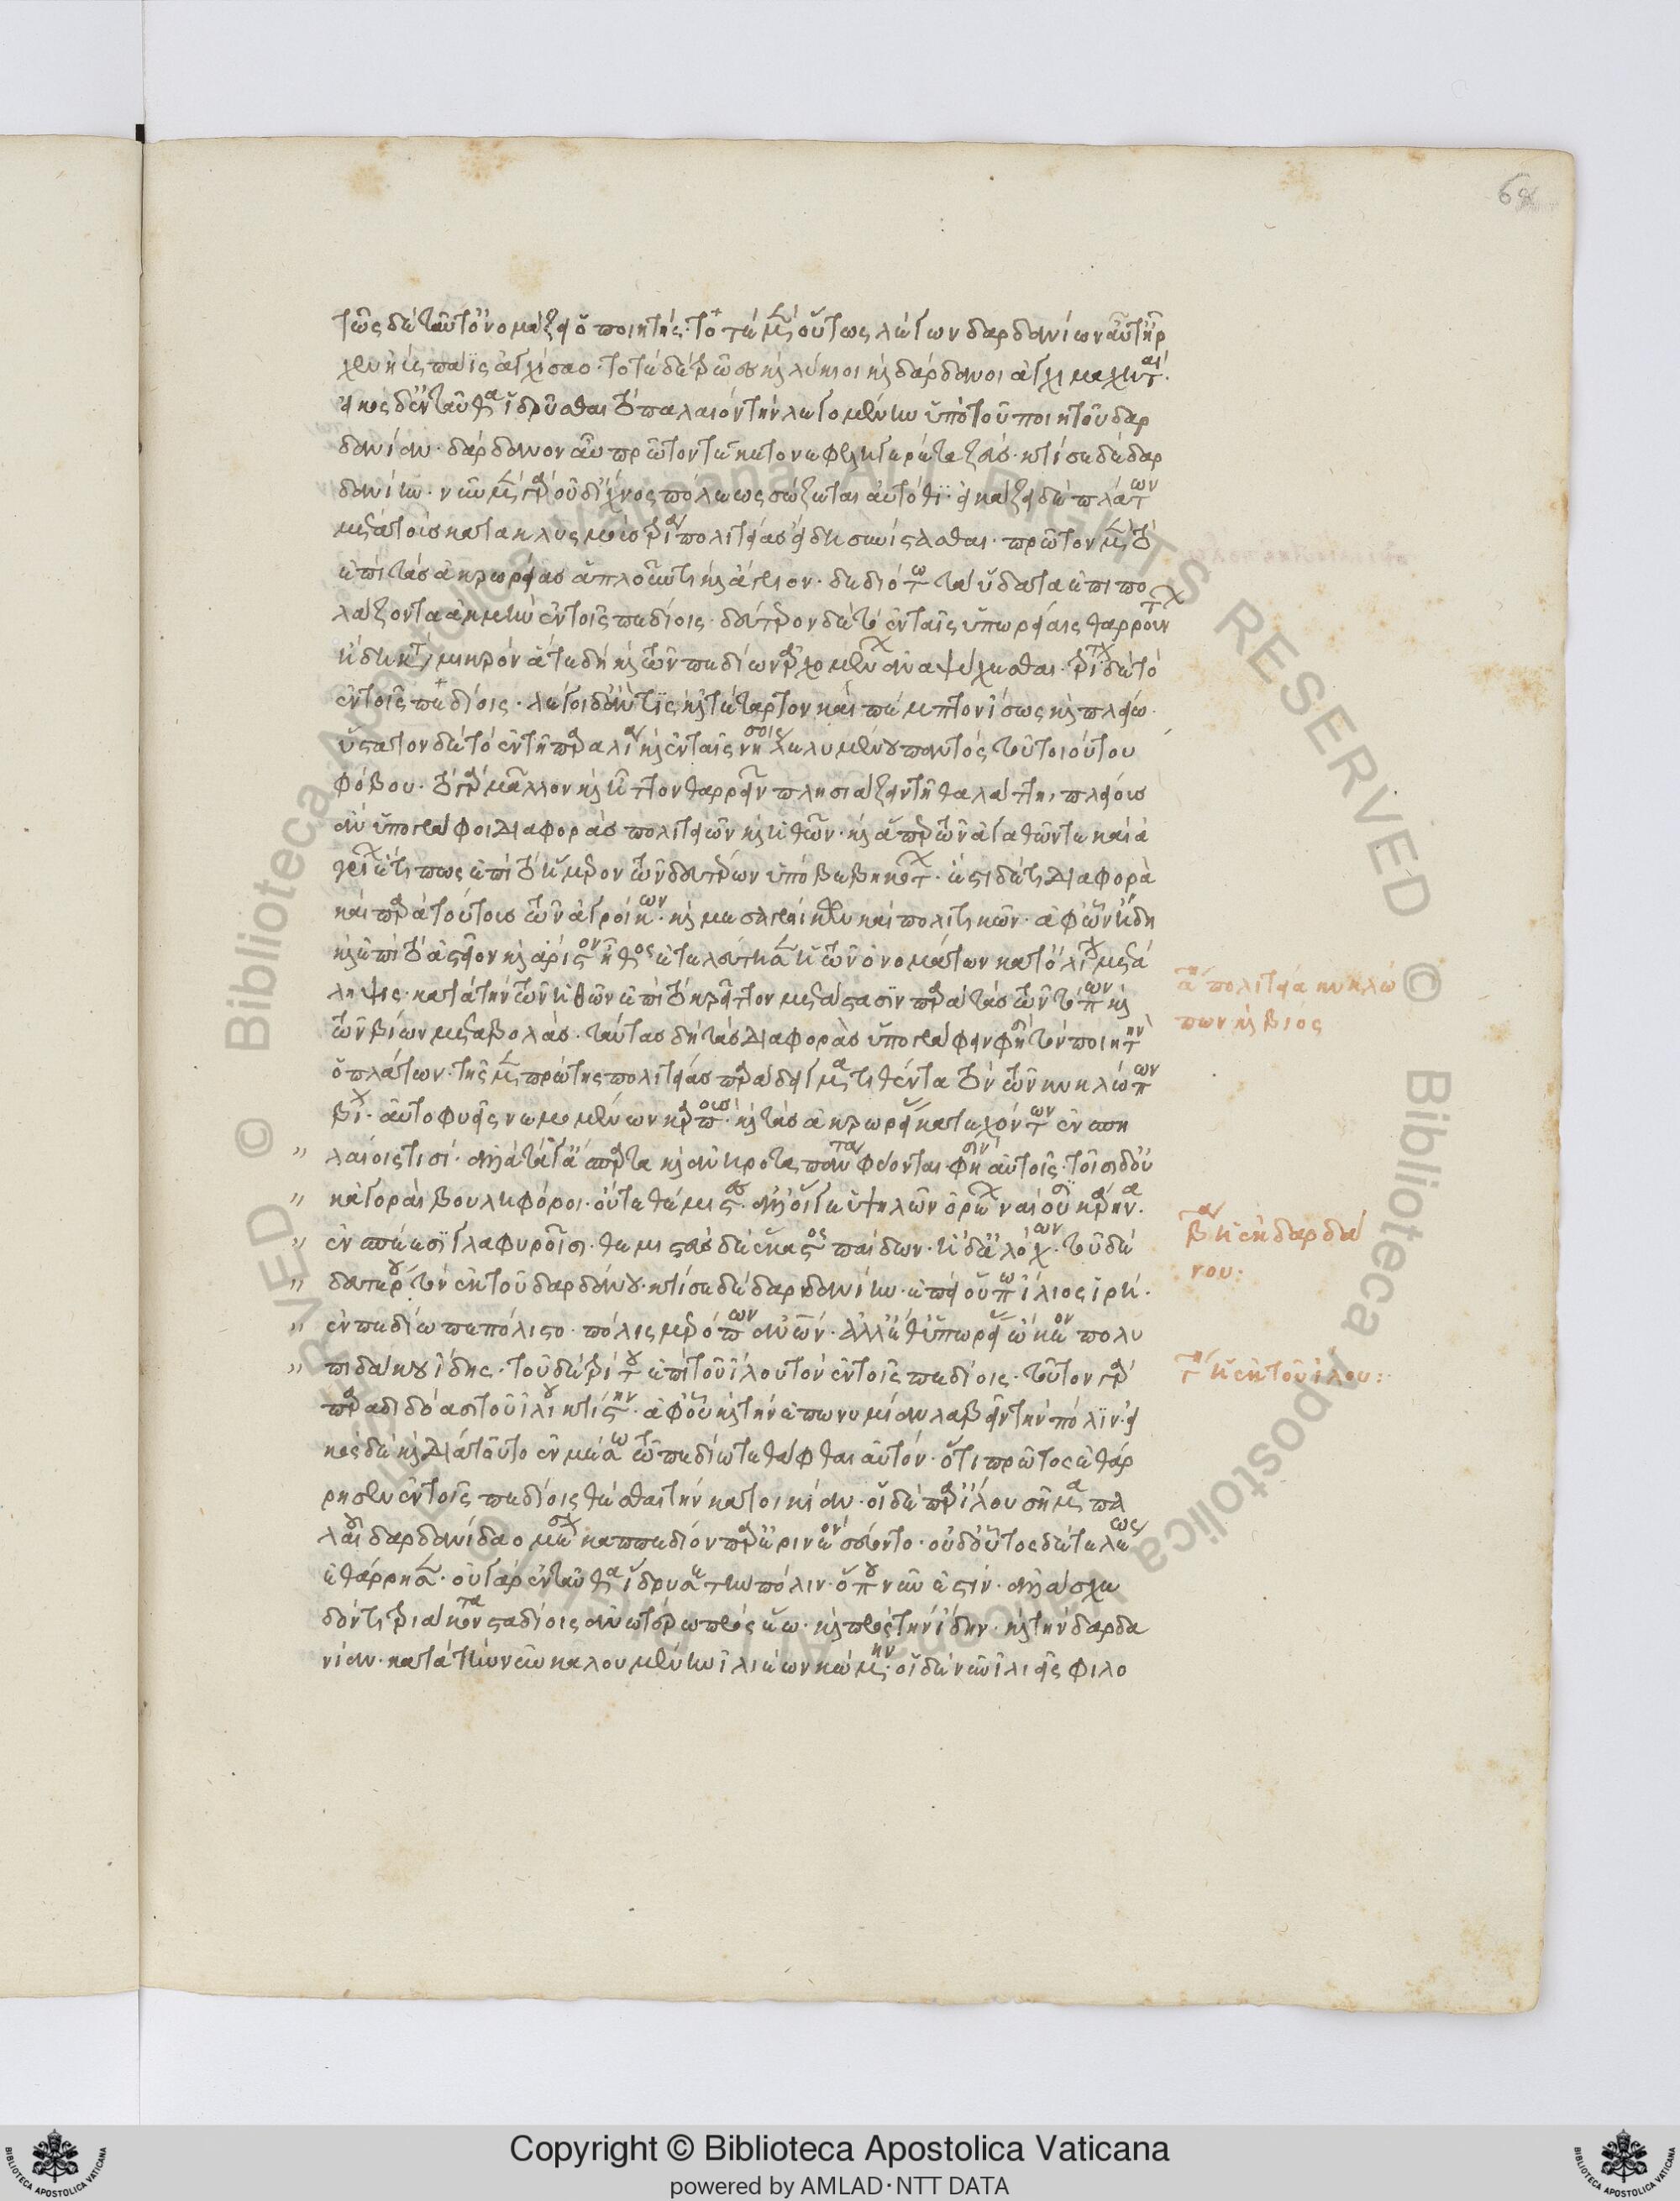 τῶς δὲ ταῦτ' ὀνομάζει ὁ ποιητής· τοτὲ μὲν οὕτως λέγων δαρδανίων αὖτ' ἦρ
χεν ἐῢς παῖς ἀγχίσαο· τοτὲ δὲ τρῶες καὶ λύκιοι καὶ δάρδανοι ἀγχιμαχηταί·
εἰκὸς δ' ἐνταῦθα ἱδρῦσθαι τὸ παλαιὸν τὴν λεγομένην ὑπὸ τοῦ ποιητοῦ δαρ
δανίαν· δάρδανον αὖ πρῶτον τέκετο νεφεληγερέτα ζεύς· κτίσε δὲ δαρ
δανίην· νῦν μὲν γὰρ οὐδ' ἴχνος πόλεως σώζεται αὐτόθι· εἰκάζει δὲ πλάτων
μετὰ τοὺς κατακλυσμοὺς τρία πολιτείας εἴδη συνίστασθαι· πρῶτον μὲν τὸ
ἐπὶ τὰς ἀκρωρείας ἁπλοῦν τι καὶ ἄγριον· δεδιότων τὰ ὕδατα ἐπιπο
λάζοντα ἀκμὴν ἐν τοῖς πεδίοις· δεύτερον δὲ τὸ ἐν ταῖς ὑπωρείαις θαρρούντων
ἤδη κατὰ μικρὸν ἅτε δὴ καὶ τῶν πεδίων ἀρχομένων ἀναψύχεσθαι· τρίτον δὲ τὸ
ἐν τοῖς πεδίοις· λέγοι δ' ἄν τις καὶ τέταρτον καὶ πέμπτον ἴσως καὶ πλείω·
ὕστατον δὲ τὸ ἐν τῇ παραλίᾳ καὶ ἐν ταῖς νήσοις λελυμένου παντὸς τοῦ τοιούτου
φόβου· τὸ γὰρ μᾶλλον καὶ ἧττον θαρρεῖν πλησιάζειν τῇ θαλάττῃ πλείους
ἂν ὑπογράφοι διαφορὰς πολιτειῶν καὶ ἠθῶν· καὶ ἅπερ τῶν ἀγαθῶν τε καὶ ἀ
γρίων ἔτι πως ἐπὶ τὸ ἥμερον τῶν δευτέρων ὑποβεβηκότων· ἔστι δέ τι διαφορὰ
καὶ παρὰ τούτοις τῶν ἀγροίκων· καὶ μεσαγροίκων καὶ πολιτικῶν· ἀφ' ὧν ἤδη
καὶ ἐπὶ τὸ ἀστεῖον καὶ ἄριστον ἦθος ἐτελεύτησεν ἡ τῶν ὀνομάτων κατ' ὀλίγον μετά
ληψις· κατὰ τὴν τῶν ἠθῶν ἐπὶ τὸ κρεῖττον μετάστασιν παρὰ τὰς τῶν τόπων καὶ
τῶν βίων μεταβολάς· ταύτας δὴ τὰς διαφορὰς ὑπογράφειν φησὶ τὸν ποιητὴν
ὁ πλάτων· τῆς μὲν πρώτης πολιτείας παράδειγμα τιθέντα τὸν τῶν κυκλώπων
βίον· αὐτοφυεῖς νεμομένων καρποὺς· καὶ τὰς ἀκρωρείας κατεχόντων ἐν σπη
λαίοις τισί· ἀλλὰ τά γ' ἄσπαρτα καὶ ἀνήροτα πάντα φύονται φησὶν αὐτοῖς· τοῖσι δ' οὐ
κ ἀγοραὶ βουληφόροι· οὔτε θέμιστες· ἀλλ' οἵ γε ὑψηλῶν ὀρέων ναίουσι κάρηνα·
ἐν σπέεσι γλαφυροῖσι· θεμιστεύει δὲ ἕκαστος παίδων· ἠδ' ἀλόχων· τοῦ δὲ
δευτέρου τὸν ἐκ τοῦ δαρδάνου· κτίσε δὲ δαρδανίην· ἐπεὶ οὔπω ἴλιος ἱρή·
ἐν πεδίῳ πεπόλιστο· πόλις μερόπων ἀνθρώπων· ἀλλ' ἔθ' ὑπωρείας ᾤκεον πολυ
πιδάκου ἴδης· τοῦ δὲ τρίτου ἐπὶ τοῦ ἴλου τὸν ἐν τοῖς πεδίοις· τοῦτον γὰρ
παραδιδόασι τοῦ ἰλίου κτίστην· ἀφ' οὗ καὶ τὴν ἐπωνυμίαν λαβεῖν τὴν πόλιν· εἰ
κὸς δὲ καὶ διὰ τοῦτο ἐν μέσῳ τῷ πεδίῳ τετάφθαι αὐτόν· ὅτι πρῶτος ἐθάρ
ρησεν ἐν τοῖς πεδίοις θέσθαι τὴν κατοικίαν· οἱ δὲ παρ' ἴλου σῆμα πα
λαιοῦ δαρδανίδαο μέσον καππεδίον παρ' ἐρινεὸν ἐσσεύοντο· οὐδ' οὗτος δὲ τελέως
ἐθάρρησεν· οὐ γὰρ ἐνταῦθα ἵδρυσε τὴν πόλιν· ὅπου νῦν ἐστίν· ἀλλὰ σχε
δόν τι τριάκοντα σταδίοις ἀνωτέρω πρὸς ἕω· καὶ πρὸς τὴν ἴδην· καὶ τὴν δαρδα
νίαν· κατὰ τὴν νῦν καλουμένην ἰλιέων κώμην· οἱ δὲ νῦν ἰλιεῖς φιλο
αʹ πολιτεία κυκλώ
πων καὶ βίος
βʹ ἡ ἐκ δαρδά
νου:
γʹ ἡ ἐκ τοῦ ἴλου:
Copyright © Biblioteca Apostolica Vaticana
powered by AMLAD·NTT DATA